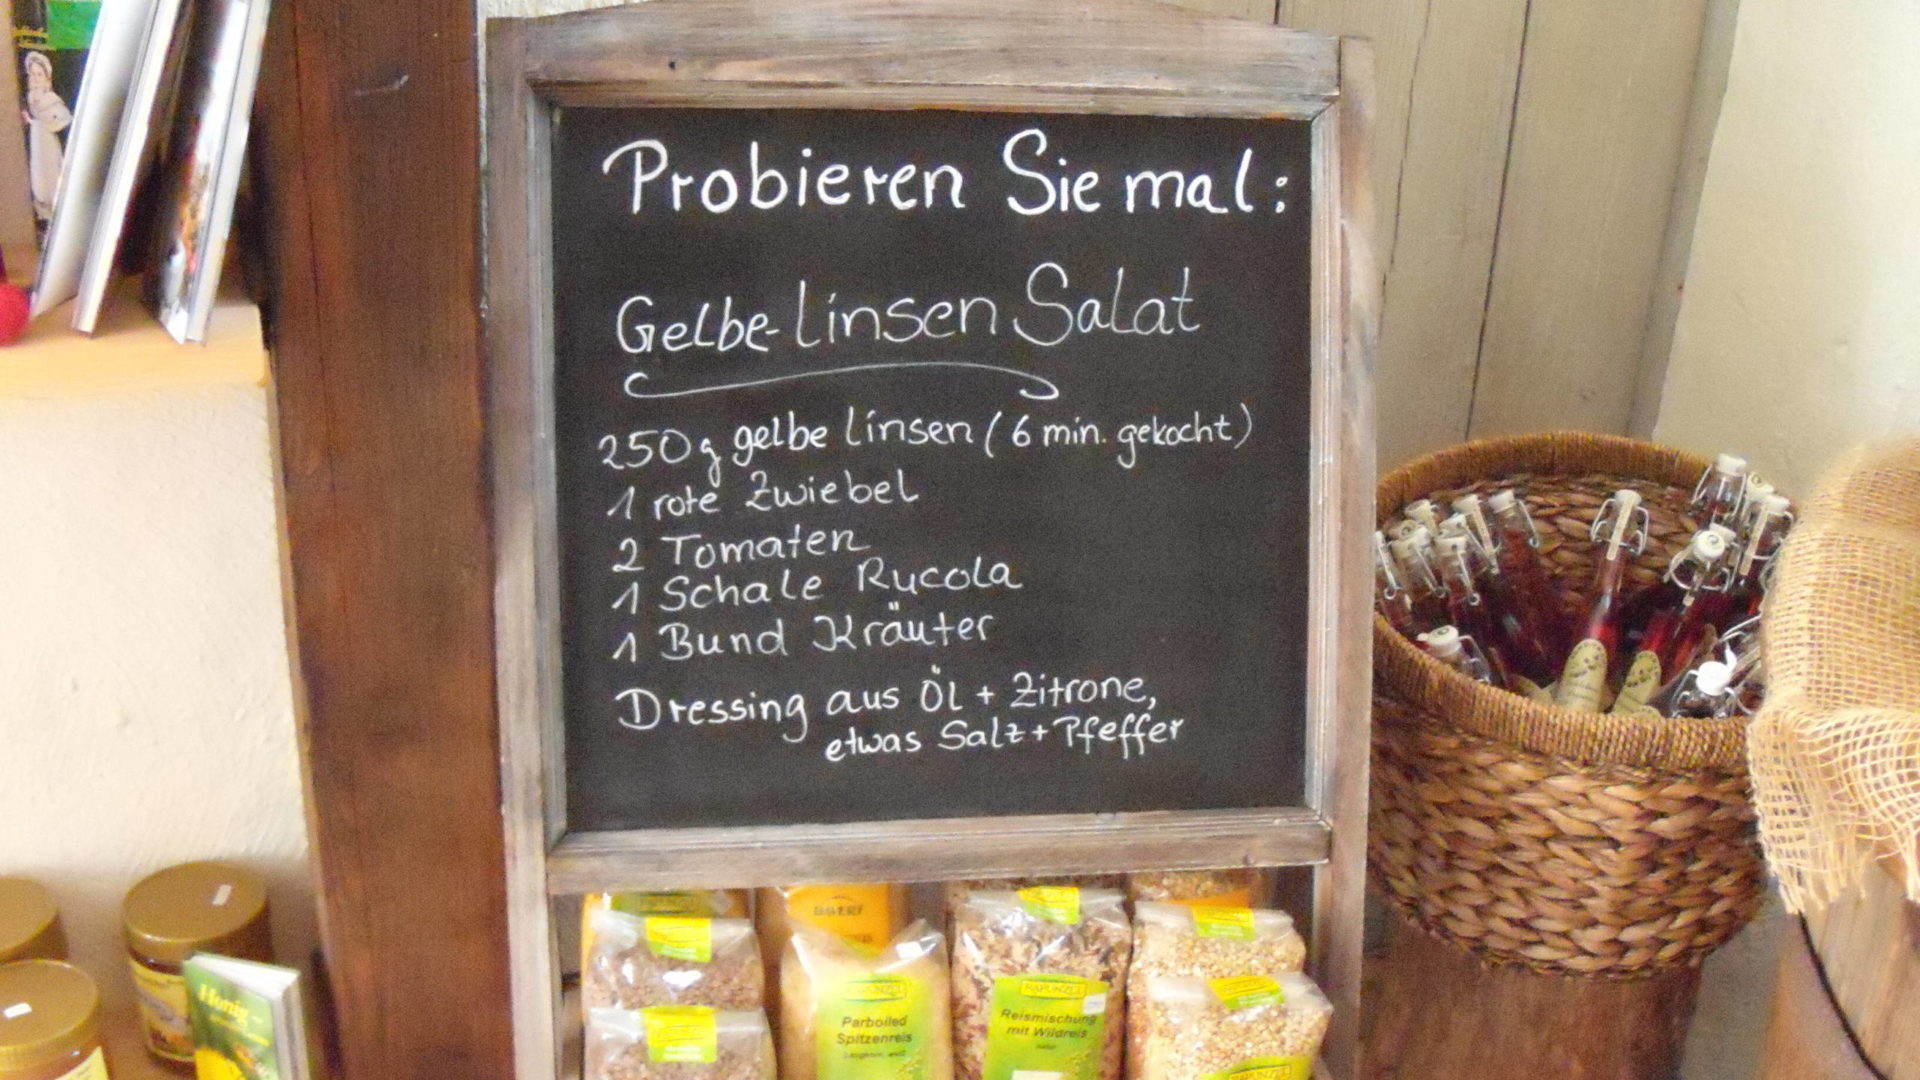 Probieren Sie mal:
Gelbe-Linsen Salat
250g gelbe Linsen (6 min. gekocht)
1 rote Zwiebel
2 Tomaten
1 Schale Rucola
1 Bund Kräuter
Dressing aus Öl + Zitrone,
etwas Salz + Pfeffer
RAPUNZEL
Parboiled
Spitzenreis
RAPUNZEL
Reismischung
mit Wildreis
RAPUNZEL
Honig-